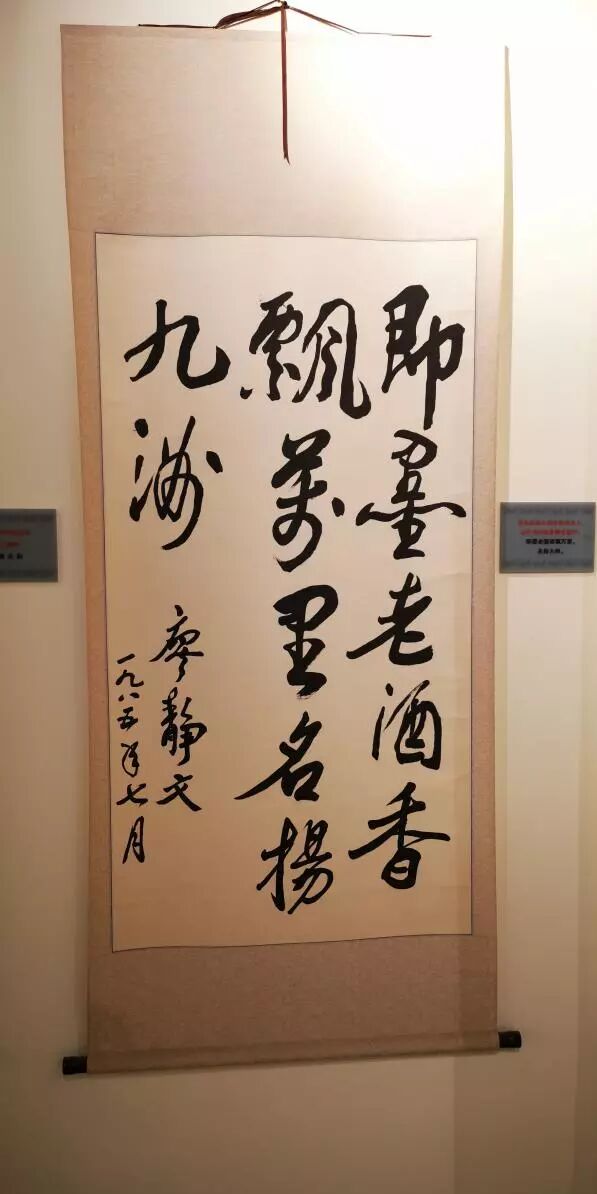 即墨老酒香
飘萬里名揚
九洲
廖静文
一九八五年七月